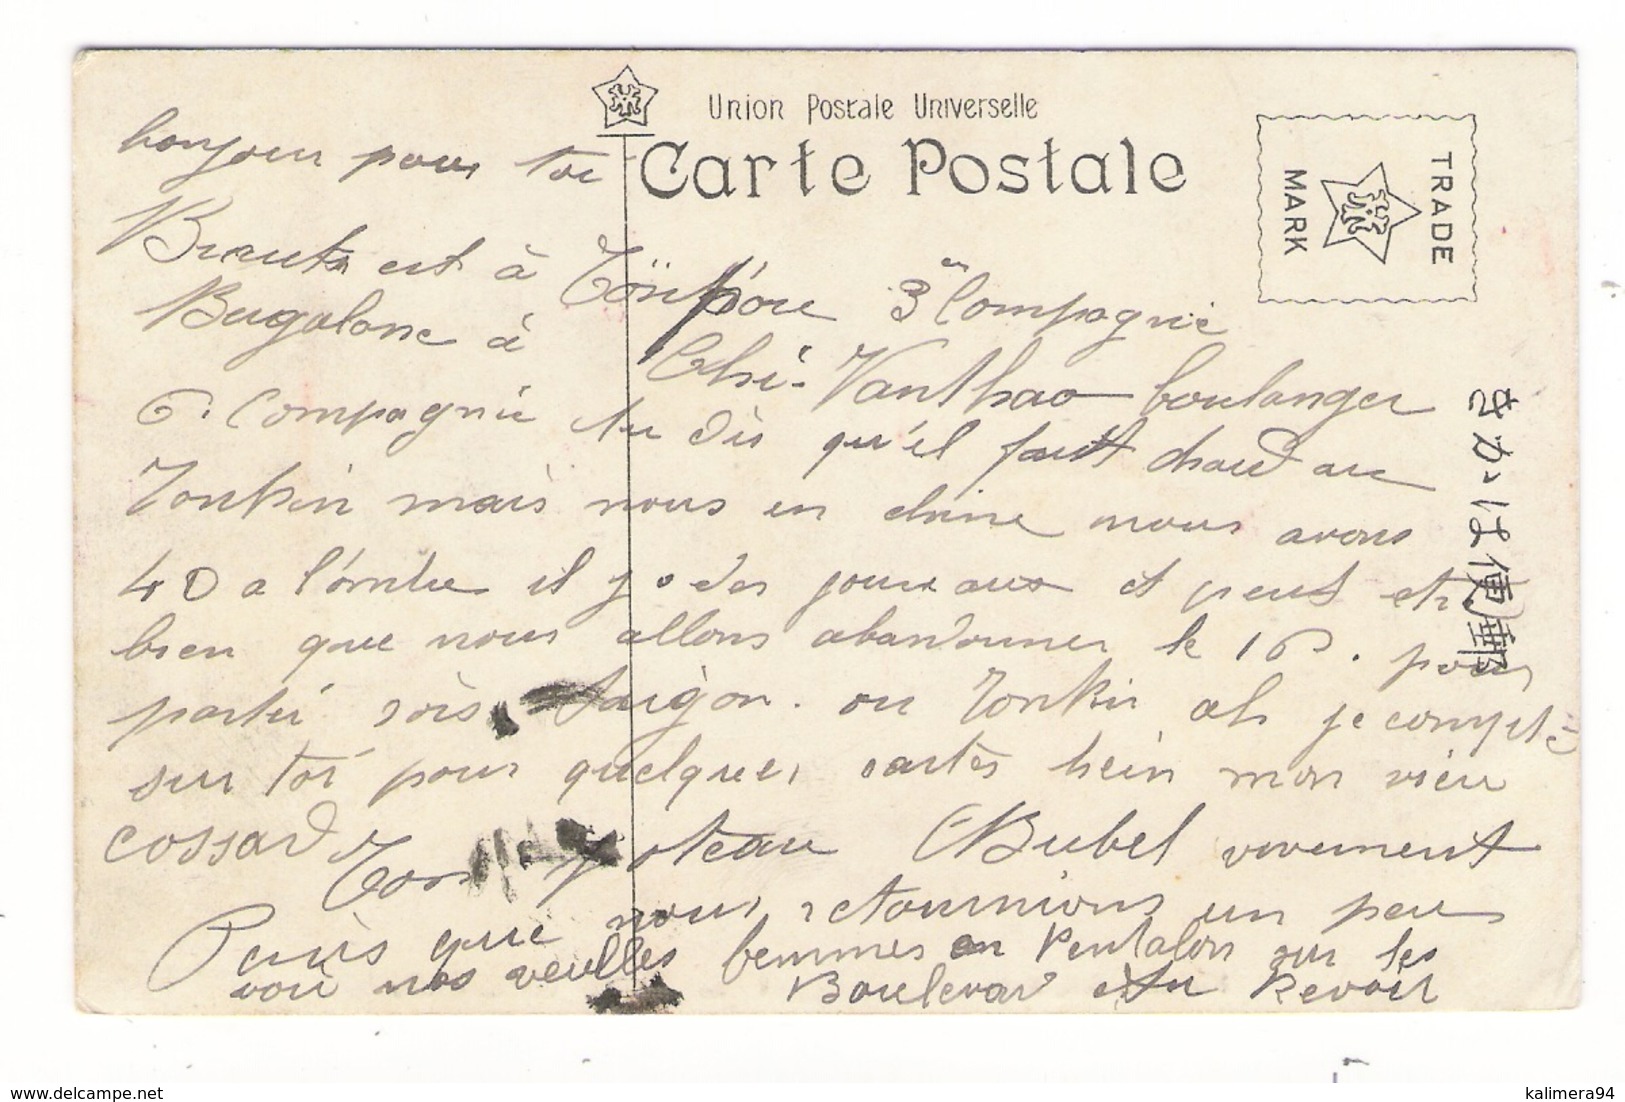 Union Postale Universelle
Carte Postale
TRADE
MARK
きかは便郵
bonjour pour toi
est à
à 3en Compagnie
Chi-Vanthao boulanger
6. Compagnie tu dis qu'il fault chaud au
Tonkin mais nous en chine nous avons
40 a l'ombre il y a des et peut etr
bien que nous allons abandonner le 16. pour
parti sois Saigon. ou Tonkin ah je compte
sur toi pour quelques cartes hein mon vieu
cossard Ton poteau Bubel vivement
Paris que nous retournions un peu
voir nos veilles femmes en Pentalon sur les
Boulevar Au Revoir
www.delcampe.net
kalimera94